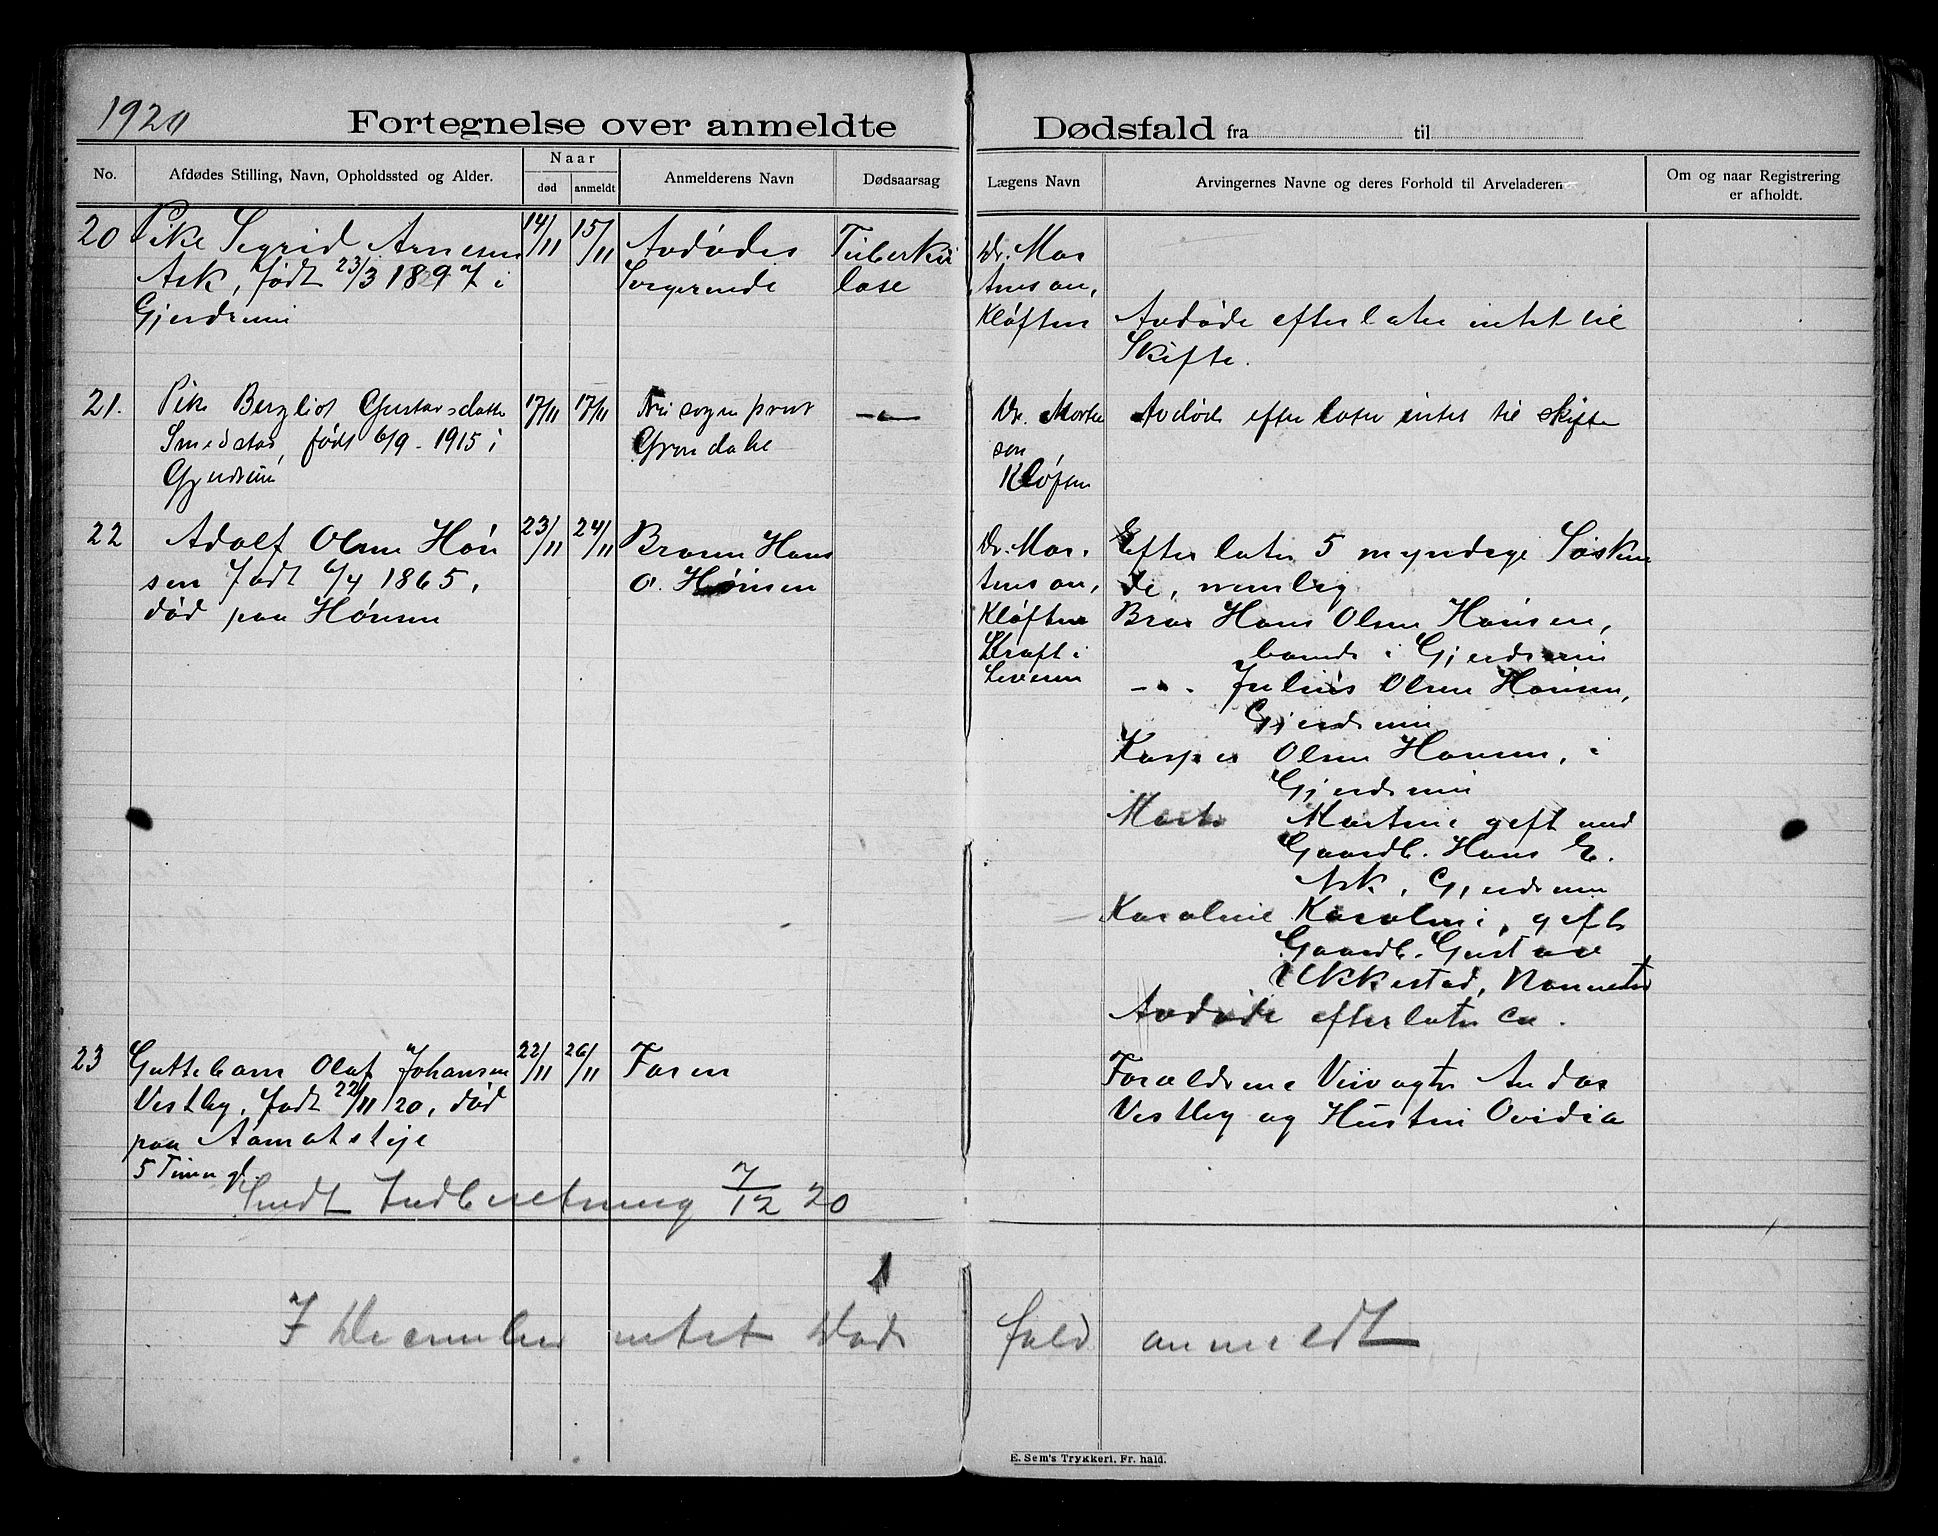 1920
Fortegnelse over anmeldte Dødsfald fra til
No.
Afdødes Stilling, Navn, Opholdssted og Alder.
Naar
død
anmeldt
Anmelderens Navn
Dødsaarsag
Lægens Navn
Arvingernes Navne og deres Forhold til Arveladeren
Om og naar Registrering
er afholdt.
20
Pike Sigrid Arnesen
Ask, født 23/3 1897 i
Gjerdrum
14/11
15/11
Avdødes
Tuberku
lose
Dr. Mor
tenson,
Kløften
Avdøde efterlater intet til
Skifte.
21.
Pike Bergliot Gustavsdatter
Smedstad, født 6/9 - 1915 i
Gjerdrum
17/11
17/11
sogneprest
Grøndahl
Dr. Morten
son
Kløften
Avdøde efterlater intet til skifte
22
Adolf Olsen Høn
sen født 6/4 1865,
død paa Hønsen
23/11
24/11
Broren Hans
O. Hønsen
Dr. Mor.
tenson,
Kløften
Kræft i
Leveren
Efterlater 5 myndige Søsken
de, nemlig
Bror Hans Olsen Hønsen,
boende i Gjerdrum
-"- Julius Olsen Hønsen,
Gjerdrum
Kasper Olsen Hønsen, i
Gjerdrum
Marte Martine gift med
Gaardb. Hans E.
Ask, Gjerdrum
Karoline Karoline, gift
Gaardb. Gustav
Ukkestad, Nannestad
Avdøde efterlater ca.
23
Guttebarn Olaf Johansen
Vestby, født 22/11 20, død
paa
5 Timer gl.
22/11
26/11
Faren
Forældrene Veivogter Andor
Vestby og Hustru Ovidia
Sendt Indberetning 7/12 20
I December intet Døds
fald anmeldt
E. Sem's Trykkeri, Fr. hald.